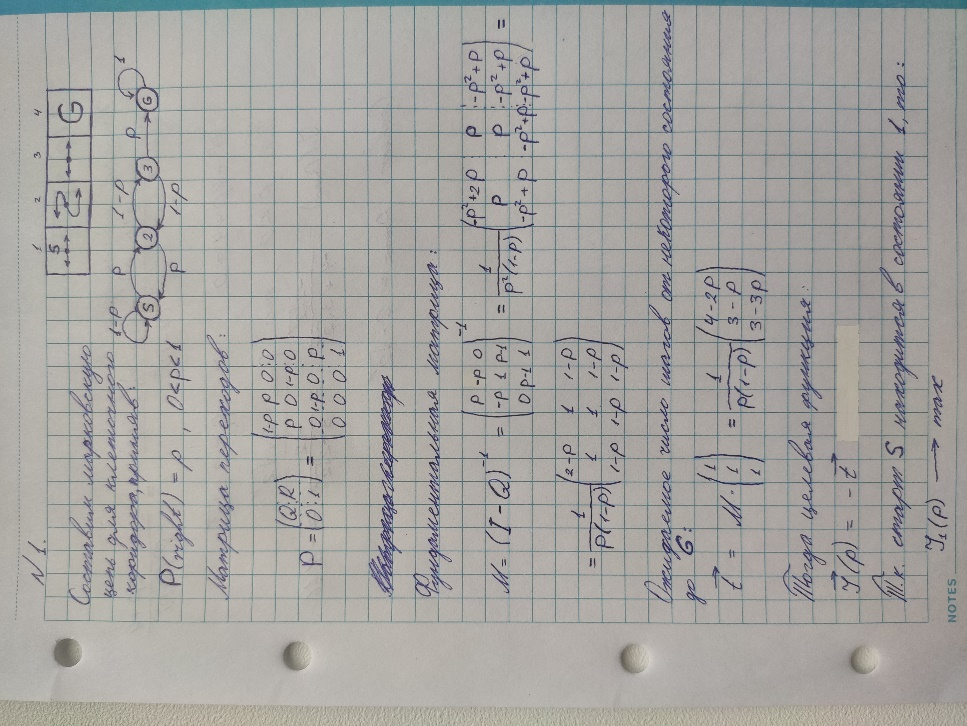 N1.
Составим марковскую
цепь для клеточного
коридора, приняв:
P(right) = p , 0<p<1
1 2 3 4
S G
1-p p p 1-p 1-p p 1
S 2 3 G
Матрица переходов:
P = (Q R / 0 1) = (1-p p 0 0 / p 0 1-p 0 / 0 1-p 0 p / 0 0 0 1)
Фундаментальная матрица:
M = (I - Q)⁻¹ = (p -p 0 / -p 1 p-1 / 0 p-1 1)⁻¹ = 1/(p²(1-p)) (-p²+2p p -p²+p / p p -p²+p / -p²+p -p²+p -p²+p) =
= 1/(p(1-p)) (2-p 1 1-p / 1 1 1-p / 1-p 1-p 1-p)
Ожидаемое число шагов от некоторого состояния
до G:
t = M · (1 / 1 / 1) = 1/(p(1-p)) (4-2p / 3-p / 3-3p)
Тогда целевая функция:
J(p) = -t
Т.к. старт S находится в состоянии 1, то:
J₁(p) → max
NOTES